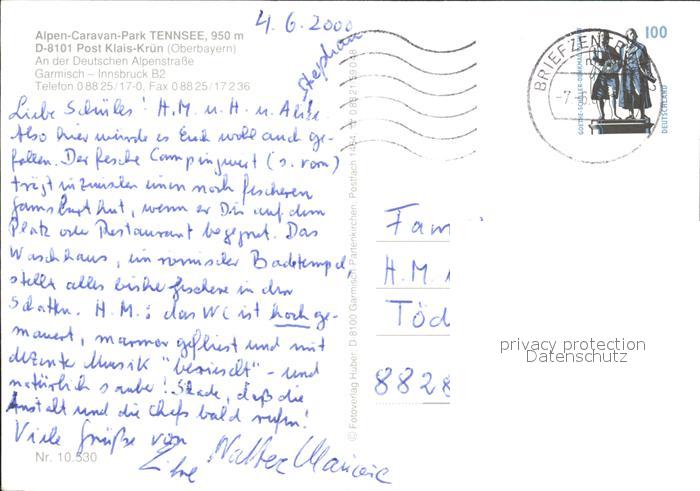 4.6.2000
Stephan
Alpen-Caravan-Park TENNSEE, 950 m
D-8101 Post Klais-Krün (Oberbayern)
An der Deutschen Alpenstraße
Garmisch – Innsbruck B2
Telefon 08825/17-0, Fax 08825/17236
Liebe Schüles! H.M. u. H. u.
Also hier würde es Euch wohl auch ge-
fallen. Der fesche Campingwirt (s. vorn)
trägt inzwischen einen noch fescheren
Gamsbarthut, wenn er Dir auf dem
Platz oder Restaurant begegnet. Das
Waschhaus, ein römischer Badetempel,
stellt alles bisher gesehene in den
Schatten. H.M.: das WC ist hoch ge-
mauert, marmor gefliest und mit
dezenter Musik "berieselt" - und
natürlich sauber! Schade, daß die
Anstalt und die Chefs bald rufen!
Viele Grüße von
Walter
Nr. 10.530
© Fotoverlag Huber: D 8100 Garmisch-Partenkirchen: Postfach 1454
BRIEFZEN
-7.
GOETHE-SCHILLER-DENKMAL
100
DEUTSCHLAND
Fam
H.M.
Töd
8828
privacy protection
Datenschutz